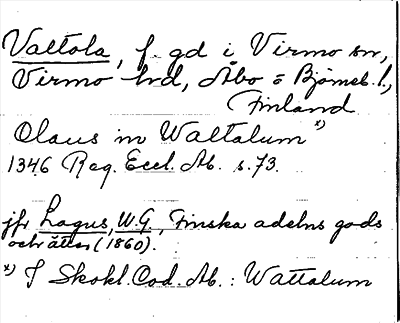 Valtola, f. gd i Virmo sn,
Virmo hd, Åbo o Björneb. l.,
Finland
Olaus in Waltalum x)
1346 Reg. Eccl. Ab. s. 73.
jfr Lagus, W.G., Finska adelns gods
och ätter (1860).
x) I Skokl. Cod. Ab.: Wattalum